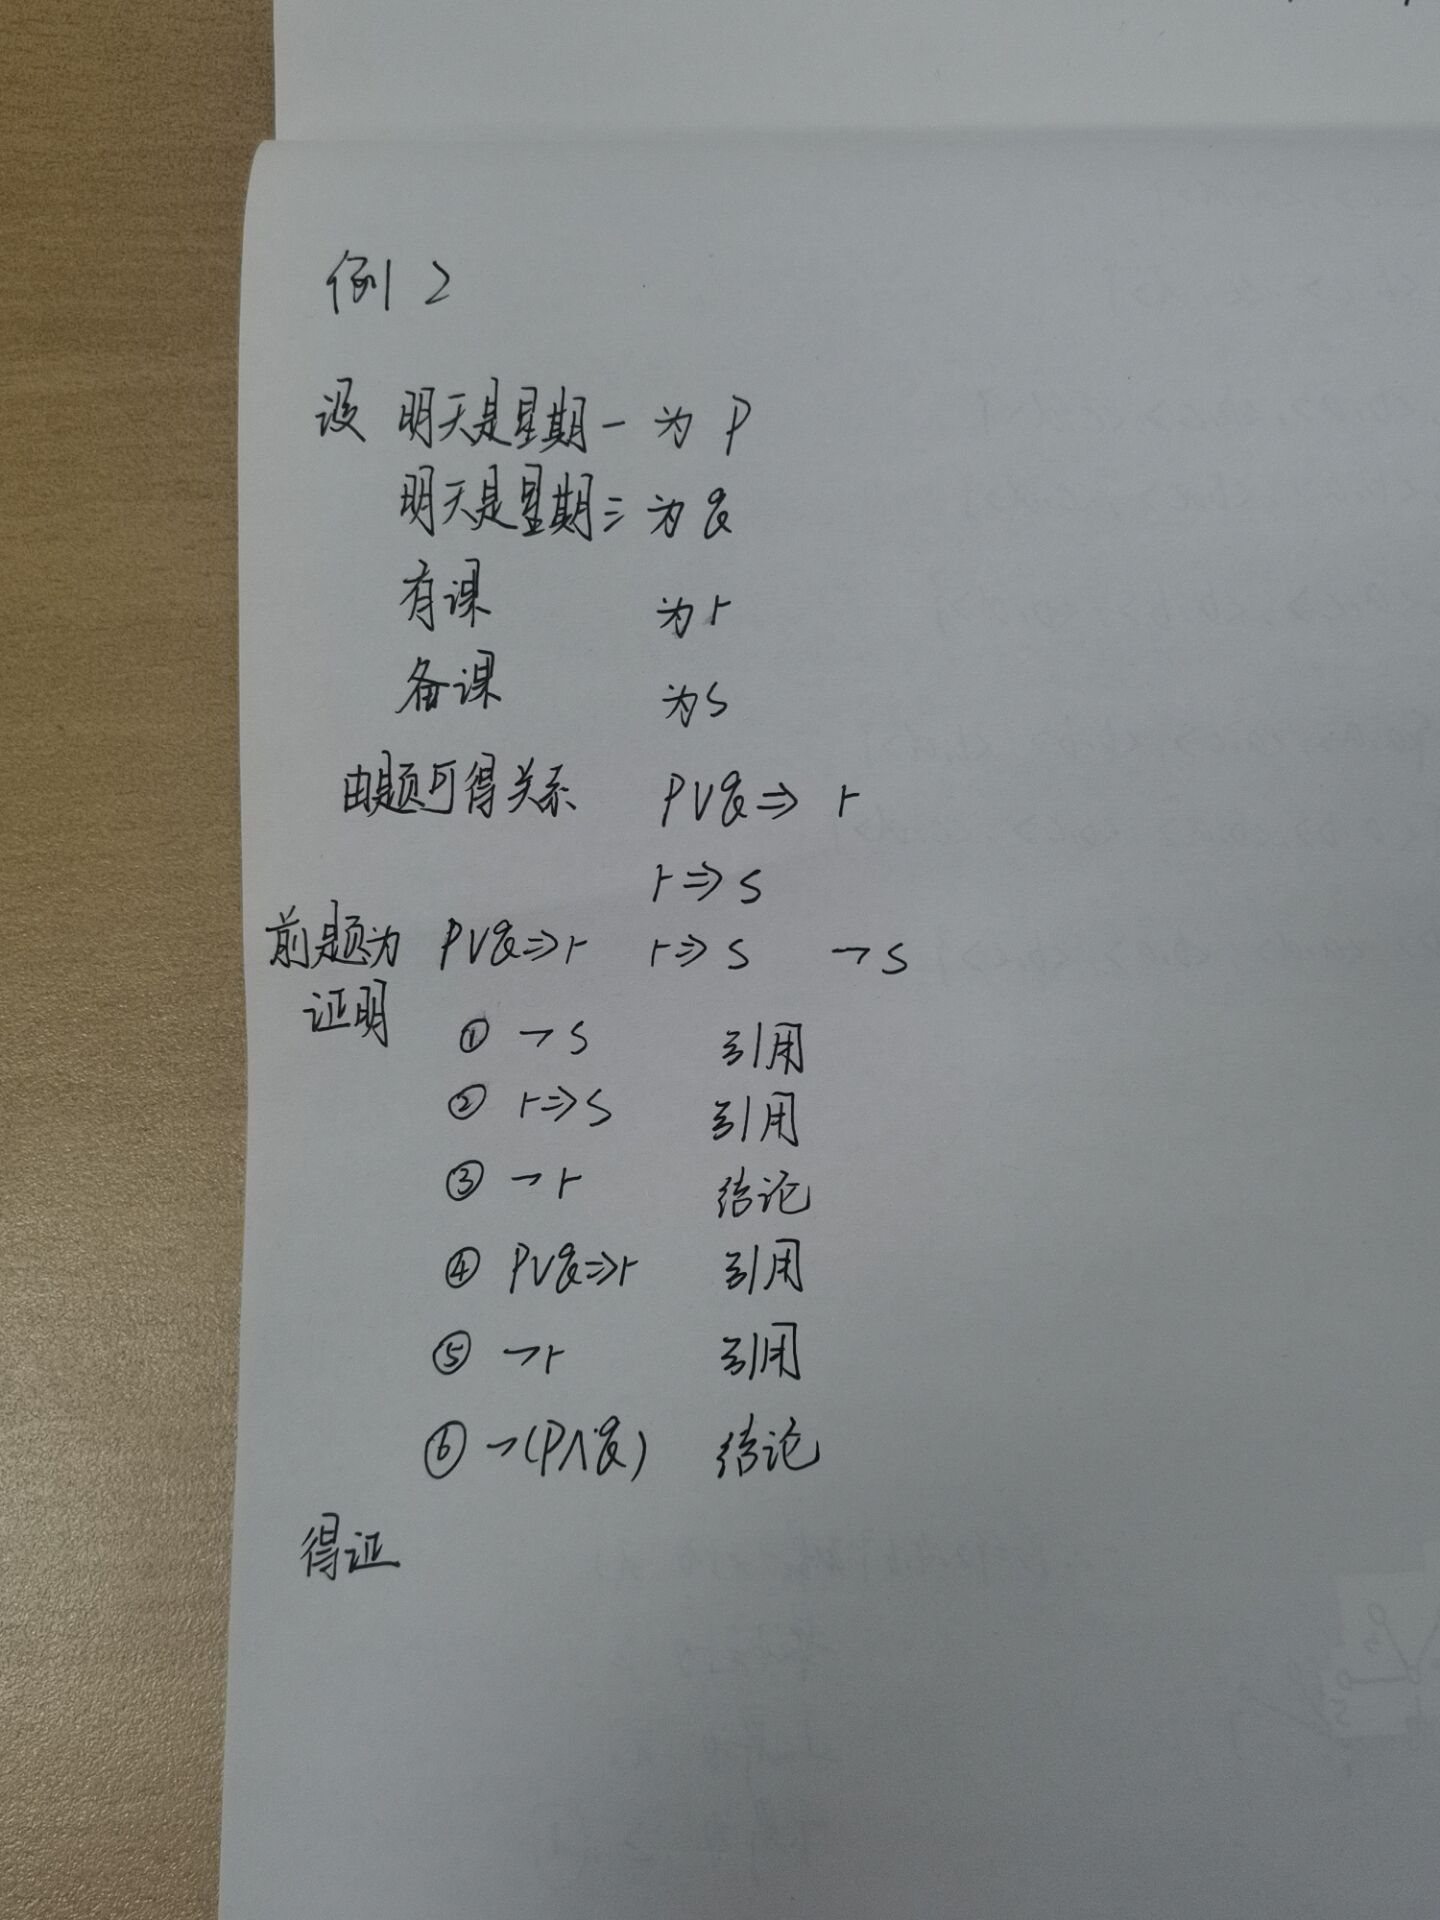 例2
设 明天是星期一 为 P
明天是星期三 为 q
有课 为 r
备课 为 s
由题可得关系 P∨q⇒ r
r⇒s
前题为 P∨q⇒r r⇒s ¬s
证明
① ¬s 引用
② r⇒s 引用
③ ¬r 结论
④ P∨q⇒r 引用
⑤ ¬r 引用
⑥ ¬(P∧q) 结论
得证